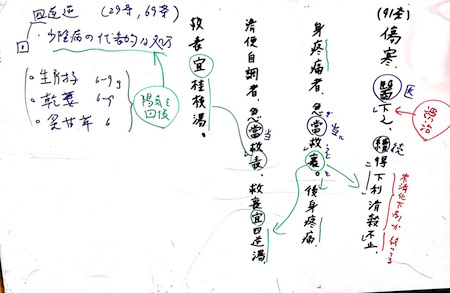 (91条)
傷寒、醫下之、續得下利清穀不止、
医
続
誤治
身疼痛者、急當救裏。後身疼痛、
清便自調者、急當救表、救裏宜四逆湯、
当
救表宜桂枝湯。
四逆湯 (29条, 69条)
少陰病の代表的な処方
・生附子 6-9g
・乾姜 6-9
・炙甘草 6
陽気を回復